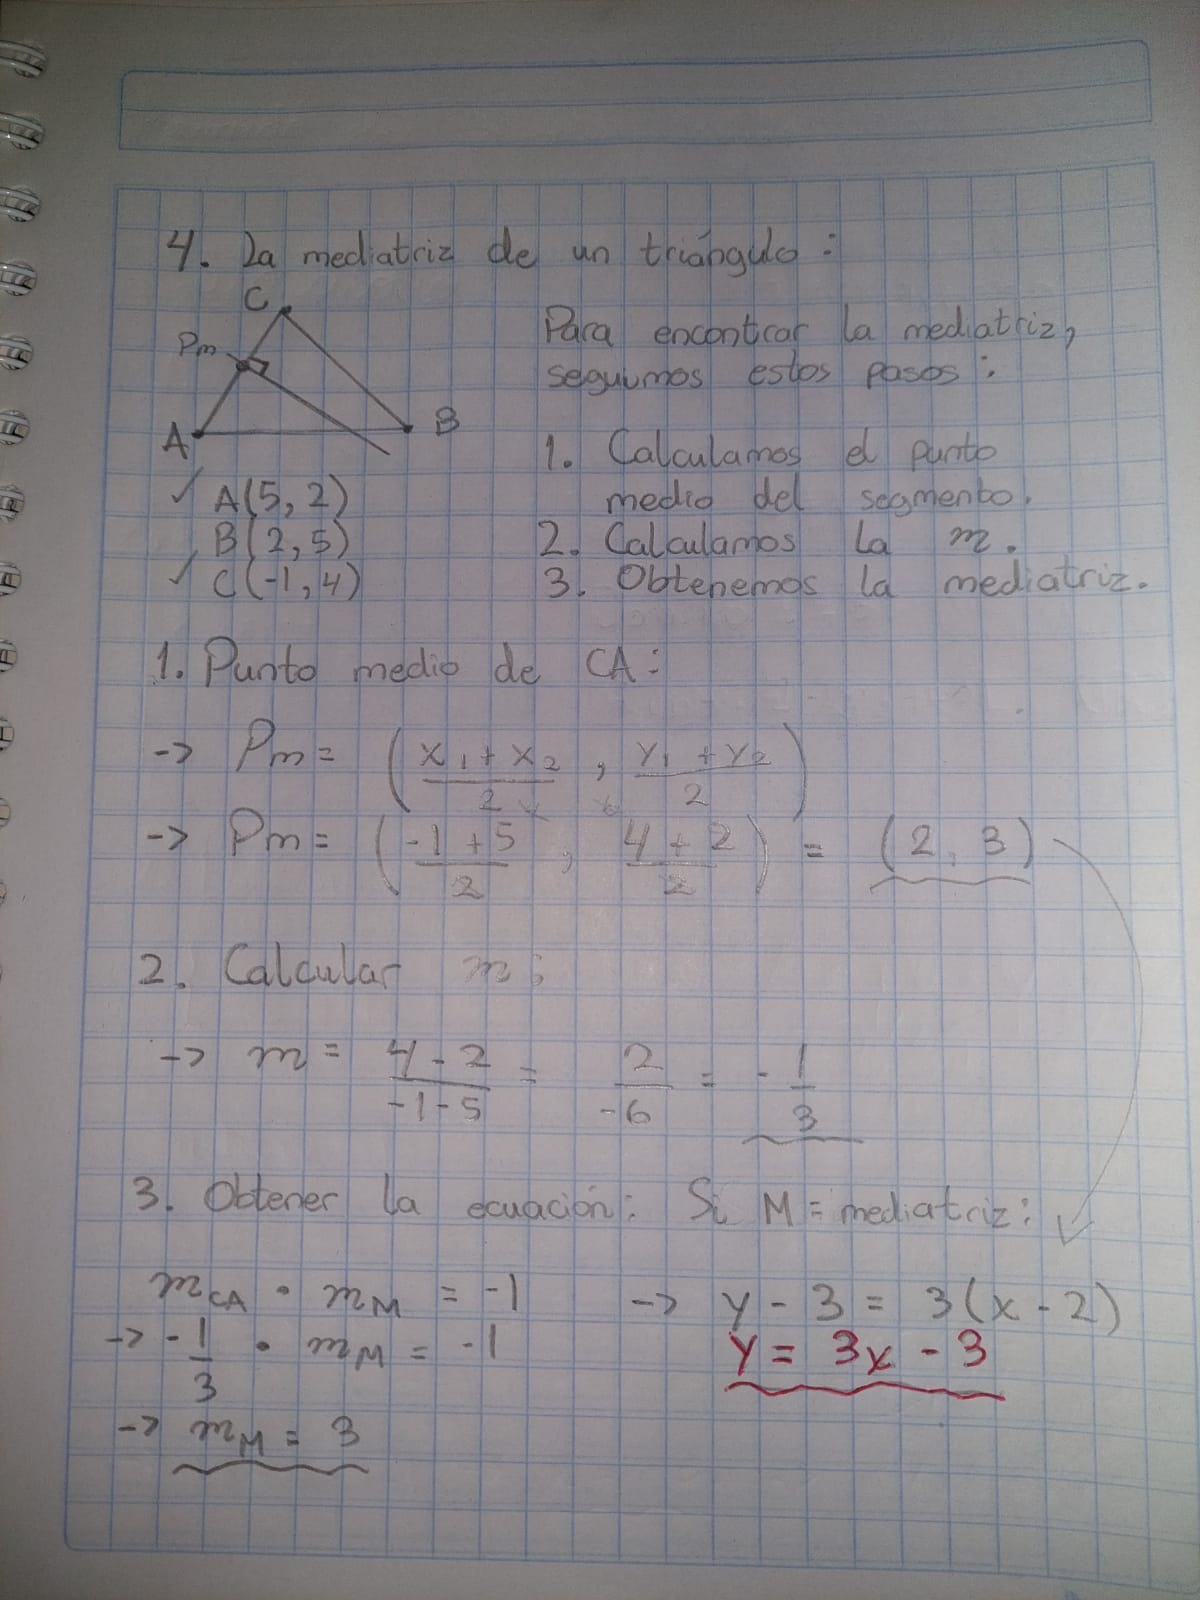 4. La mediatriz de un triángulo:
C
Pm
A
B
Para encontrar la mediatriz,
seguimos estos pasos:
1. Calculamos el punto
medio del segmento.
2. Calculamos la m.
3. Obtenemos la mediatriz.
✓ A(5, 2)
B(2, 5)
✓ C(-1, 4)
1. Punto medio de CA:
-> Pm = (x₁ + x₂ / 2 , y₁ + y₂ / 2)
-> Pm = (-1 + 5 / 2 , 4 + 2 / 2) = (2, 3)
2. Calcular m:
-> m = 4 - 2 / -1 - 5 = 2 / -6 = - 1 / 3
3. Obtener la ecuación: Si M = mediatriz:
m_CA · m_M = -1
-> - 1 / 3 · m_M = -1
-> m_M = 3
-> y - 3 = 3(x - 2)
y = 3x - 3